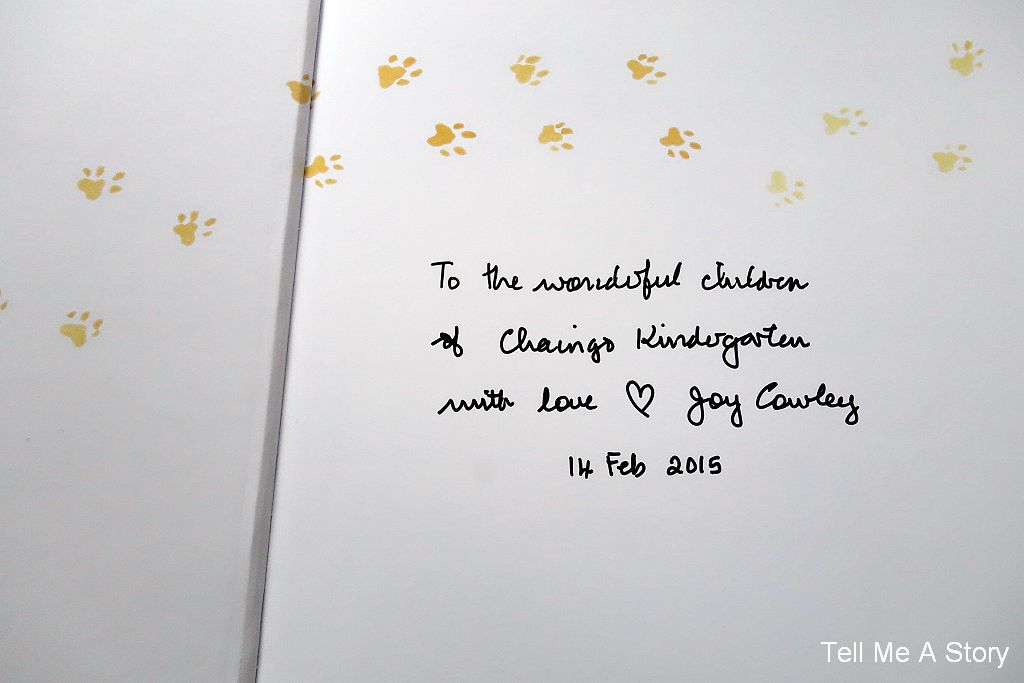 To the wonderful children
of Chaingo Kindergarten
with love ♡ Joy Cowley
14 Feb 2015
Tell Me A Story